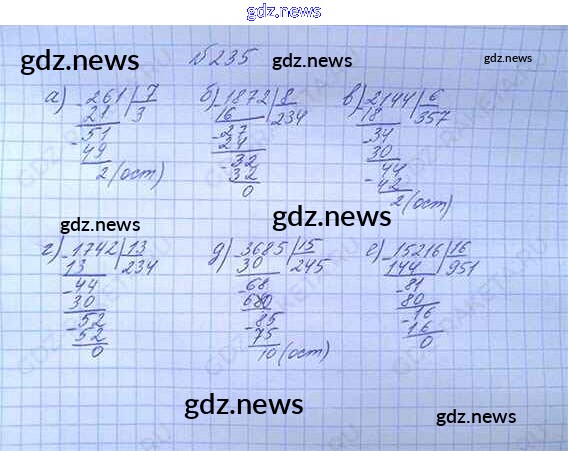 gdz.news
gdz.news №235 gdz.news gdz.news
а) -261 | 7 б) -1872 | 8 в) -2144 | 6
21 3 16 234 18 357
-51 -27 -34
49 24 30
2 (ост) -32 44
32 -42
0 2 (ост)
gdz.news gdz.news
г) -1742 | 13 д) -3685 | 15 е) -15216 | 16
13 234 30 245 144 951
-44 68 -81
30 80
-52 -85 -16
52 75 16
0 10 (ост) 0
gdz.news gdz.news